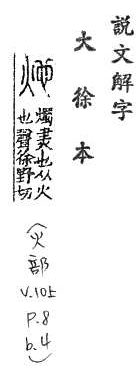 說文解字
大徐本
灺
燭㶳也从火
也聲徐野切
(火部
V.10上
P.8
b.4)